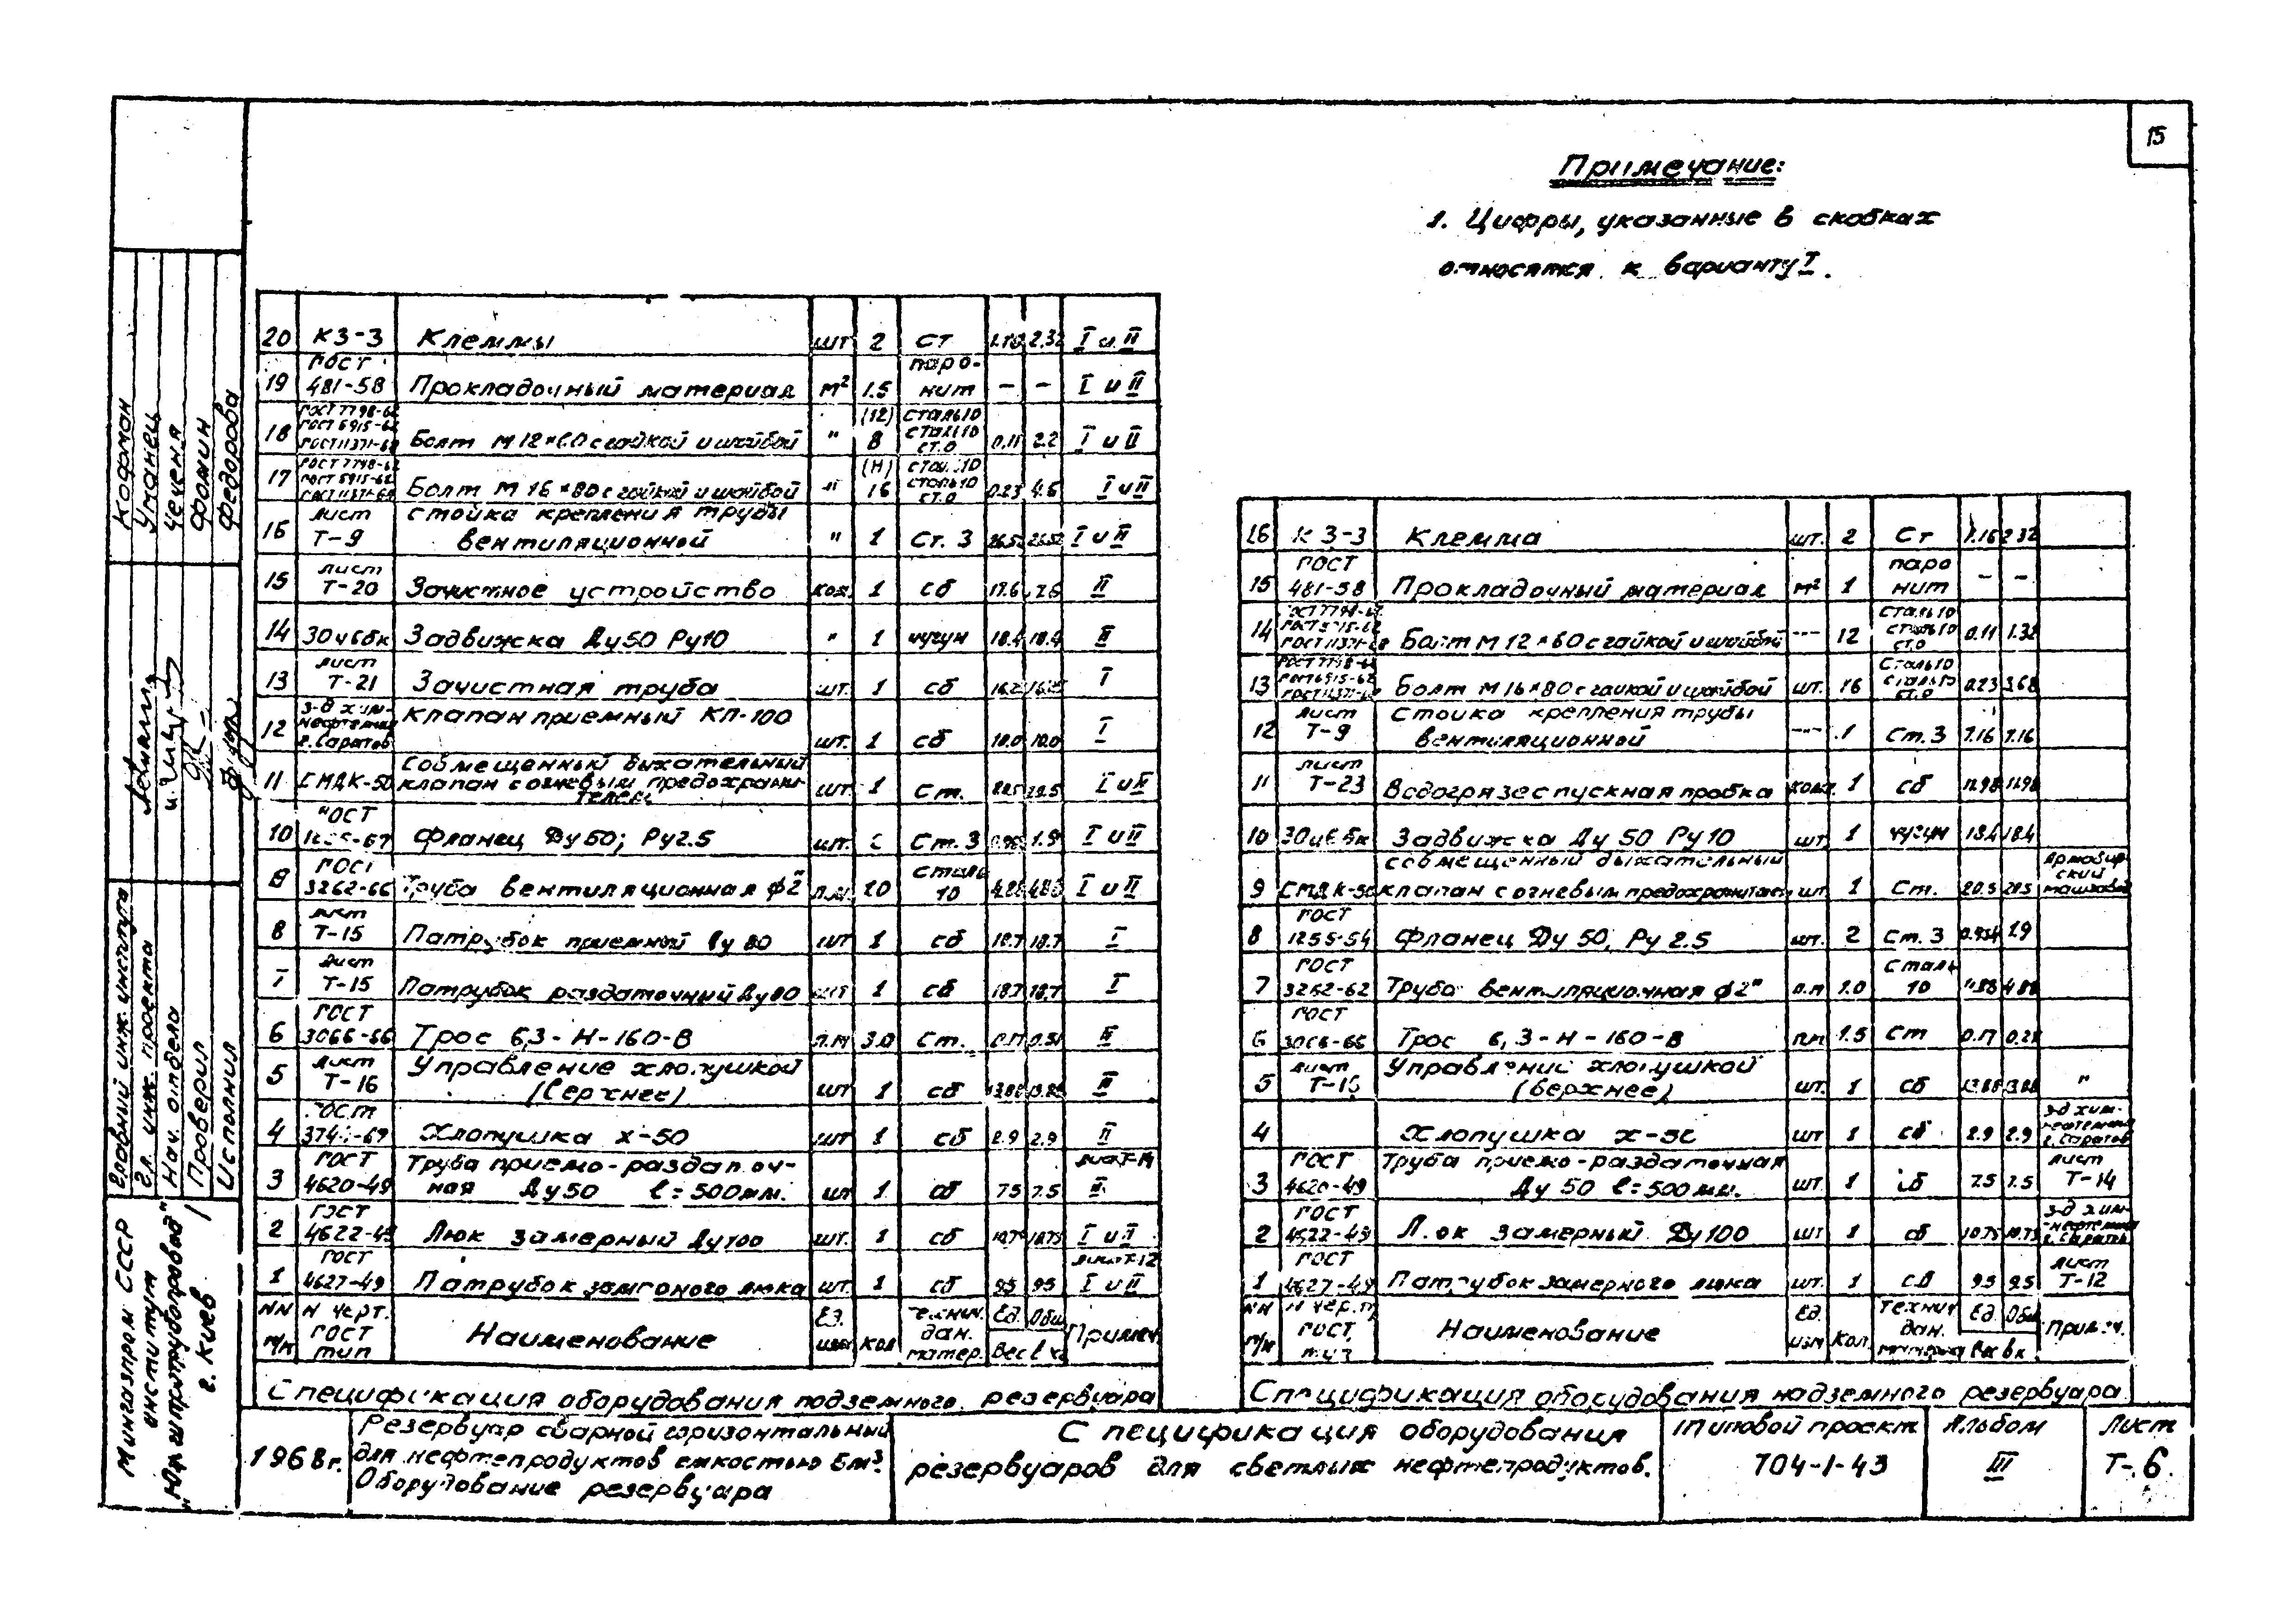 15
Примечание:
1. Цифры, указанные в скобках
относятся к варианту I.
20 КЗ-3 Клеммы шт 2 Ст 2.32 I и II
19 ГОСТ 481-58 Прокладочный материал м² 1.5 паронит – – I и II
18 ГОСТ 7798-62 ГОСТ 5915-62 ГОСТ 11371-68 Болт М12×60 с гайкой и шайбой " (12) 8 сталь 10 сталь 10 ст.0 0.11 2.2 I и II
17 ГОСТ 7798-62 ГОСТ 5915-62 ГОСТ 11371-68 Болт М16×80 с гайкой и шайбой " 16 сталь 10 сталь 10 ст.0 0.23 I и II
16 лист Т-9 стойка крепления трубы вентиляционной " 1 Ст. 3 I и II
15 лист Т-20 Зачистное устройство 1 сб 17.6 II
14 30ч6бк Задвижка Ду50 Ру10 " 1 чугун 18.4 18.4 II
13 лист Т-21 Зачистная труба шт. 1 сб I
12 з-д хим-нефтемаш г. Саратов клапан приемный КП-100 шт. 1 сб 10.0 10.0 I
11 СМДК-50 Совмещенный дыхательный клапан с огневым предохранителем шт. 1 Ст. I и II
10 ГОСТ Фланец Ду 50; Ру 2.5 шт. Ст. 3 I и II
9 ГОСТ 3262-66 Труба вентиляционная ф2" п.м. сталь 10 I и II
8 лист Т-15 Патрубок приемный Ду 80 шт 1 сб 18.7 18.7 I
7 лист Т-15 Патрубок раздаточный Ду80 шт 1 сб 18.7 18.7 I
6 ГОСТ 3066-66 Трос 6,3-Н-160-В п.м 3.0 Ст. 0.17 0.51 II
5 лист Т-16 Управление хлопушкой (верхнее) шт 1 сб II
4 ГОСТ Хлопушка х-50 шт 1 сб 2.9 2.9 II
3 ГОСТ 4620-49 Труба приемо-раздаточная Ду50 l=500мм. шт 1 сб 7.5 7.5 лист Т-14 II
2 ГОСТ 4622-49 Люк замерный Ду100 шт. 1 сб 10.75 10.75 I и II
1 ГОСТ 4627-49 Патрубок замерного люка шт. 1 сб 9.5 9.5 лист Т-12 I и II
NN п/п N черт. ГОСТ тип Наименование Ед. изм. кол технич. дан. матер. Ед. Общ Вес в кг Примеч.
Спецификация оборудования подземного резервуара
16 КЗ-3 Клемма шт. 2 Ст 1.16 2.32
15 ГОСТ 481-58 Прокладочный материал м² 1 паронит – –
14 ГОСТ 7798-62 ГОСТ 5915-62 ГОСТ 11371-68 Болт М12×60 с гайкой и шайбой -"- 12 сталь 10 сталь 10 ст.0 0.11 1.32
13 ГОСТ 7798-62 ГОСТ 5915-62 ГОСТ 11371-68 Болт М16×80 с гайкой и шайбой шт. 16 Сталь 10 сталь 10 ст.0 0.23 3.68
12 лист Т-9 Стойка крепления трубы вентиляционной -"- 1 Ст. 3 7.16 7.16
11 лист Т-23 Водогрязеспускная пробка компл. 1 сб
10 30ч6бк Задвижка Ду 50 Ру10 шт. 1 чугун 18.4 18.4
9 СМДК-50 совмещенный дыхательный клапан с огневым предохранителем шт. 1 Ст. 20.5 20.5 Армавирский машзавод
8 ГОСТ 1255-54 Фланец Ду 50; Ру 2.5 шт. 2 Ст. 3 1.9
7 ГОСТ 3262-62 Труба вентиляционная ф2" п.м 1.0 Сталь 10 4.88 4.88
6 ГОСТ 3066-66 Трос 6,3-Н-160-В п.м 1.5 Ст 0.17
5 лист Т-16 Управление хлопушкой (верхнее) шт. 1 сб "
4 Хлопушка х-50 шт 1 сб 2.9 2.9 з-д хим-нефтемаш г. Саратов
3 ГОСТ 4620-49 Труба приемо-раздаточная Ду 50 l=500мм. шт. 1 сб 7.5 7.5 лист Т-14
2 ГОСТ 4622-49 Люк замерный Ду100 шт 1 сб 10.75 10.75 з-д хим-нефтемаш г. Саратов
1 ГОСТ 4627-49 Патрубок замерного люка шт. 1 сб 9.5 9.5 лист Т-12
NN п/п N черт. ГОСТ тип Наименование Ед. изм Кол. технич дан. материал Ед. Общ Вес в кг Примеч.
Спецификация оборудования надземного резервуара
Кофман
Уманец
Чеченя
Фомин
Федорова
Главный инж. института
Гл. инж. проекта
Нач. отдела
Проверил
Исполнил
Мингазпром СССР
институт
"Южгипротрубопровод"
г. Киев
1968г.
Резервуар сварной горизонтальный
для нефтепродуктов емкостью 5м³.
Оборудование резервуара
Спецификация оборудования
резервуаров для светлых нефтепродуктов.
Типовой проект
704-1-43
Альбом
III
Лист
Т-6